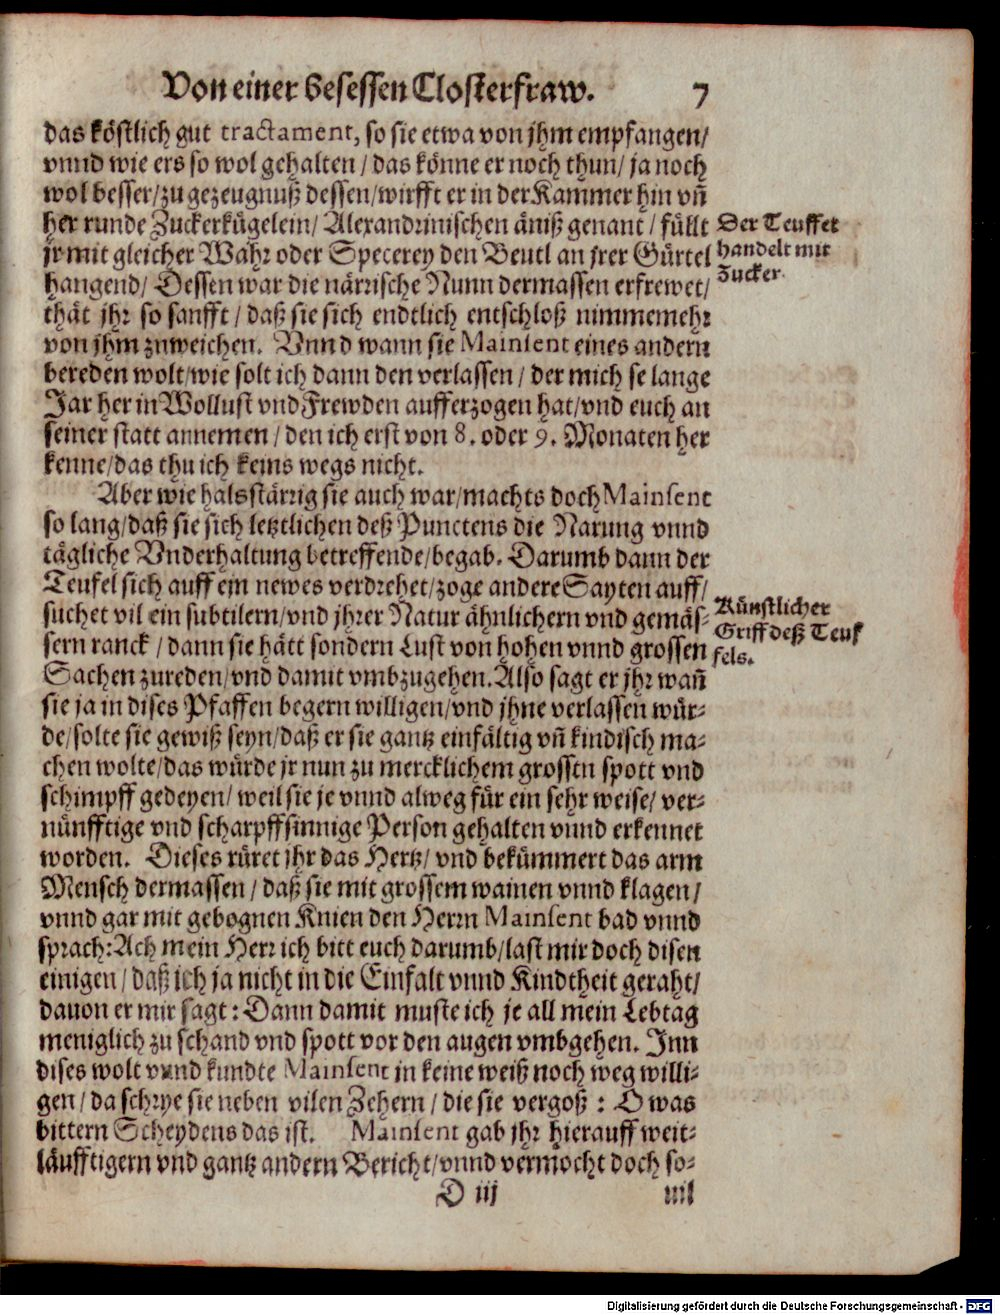 Von einer besessen Closterfraw. 7
das köstlich gut tractament, so sie etwa von jhm empfangen/
vnnd wie ers so wol gehalten / das könne er noch thun/ ja noch
wol besser/zu gezeugnuß dessen/wirfft er in der Kammer hin vñ
her runde Zuckerkügelein/ Alexandrinischen äniß genant / füllt
jr mit gleicher Wahr oder Specerey den Beutl an jrer Gürtel
hangend/ Dessen war die närrische Nunn dermassen erfrewet/
thät jhr so sanfft / daß sie sich endtlich entschloß nimmemehr
von jhm zuweichen. Vnnd wann sie Mainsent eines andern
bereden wolt/wie solt ich dann den verlassen / der mich se lange
Jar her in Wollust vnd Frewden aufferzogen hat/vnd euch an
seiner statt annemen / den ich erst von 8. oder 9. Monaten her
kenne/das thu ich keins wegs nicht.
Der Teuffel
handelt mit
Zucker.
Aber wie halsstärrig sie auch war/machts doch Mainsent
so lang/daß sie sich letztlichen deß Punctens die Narung vnnd
tägliche Vnderhaltung betreffende/begab. Darumb dann der
Teufel sich auff ein newes verdrehet/zoge andere Sayten auff/
suchet vil ein subtilern/vnd jhrer Natur ähnlichern vnd gemäs-
sern ranck / dann sie hätt sondern Lust von hohen vnnd grossen
Sachen zureden/vnd damit vmbzugehen. Also sagt er jhr wañ
sie ja in dises Pfaffen begern willigen/vnd jhne verlassen wür-
de/solte sie gewiß seyn/daß er sie gantz einfältig vñ kindisch ma-
chen wolte/das würde jr nun zu mercklichem grossen spott vnd
schimpff gedeyen/ weil sie je vnnd alweg für ein sehr weise/ ver-
nünfftige vnd scharpffsinnige Person gehalten vnnd erkennet
worden. Dieses rüret jhr das Hertz/ vnd bekümmert das arm
Mensch dermassen / daß sie mit grossem wainen vnnd klagen/
vnnd gar mit gebognen Knien den Herrn Mainsent bad vnnd
sprach: Ach mein Herr ich bitt euch darumb/last mir doch disen
einigen / daß ich ja nicht in die Einfalt vnnd Kindtheit geraht/
dauon er mir sagt: Dann damit muste ich je all mein Lebtag
meniglich zu schand vnd spott vor den augen vmbgehen. Inn
dises wolt vnnd kundte Mainsent in keine weiß noch weg willi-
gen/ da schrye sie neben vilen Zehern / die sie vergoß : O was
bittern Scheydens das ist. Mainsent gab jhr hierauff weit-
läufftigern vnd gantz andern Bericht/vnnd vermocht doch so-
Künstlicher
Griff deß Teuf
fels.
D iij vil
Digitalisierung gefördert durch die Deutsche Forschungsgemeinschaft - DFG